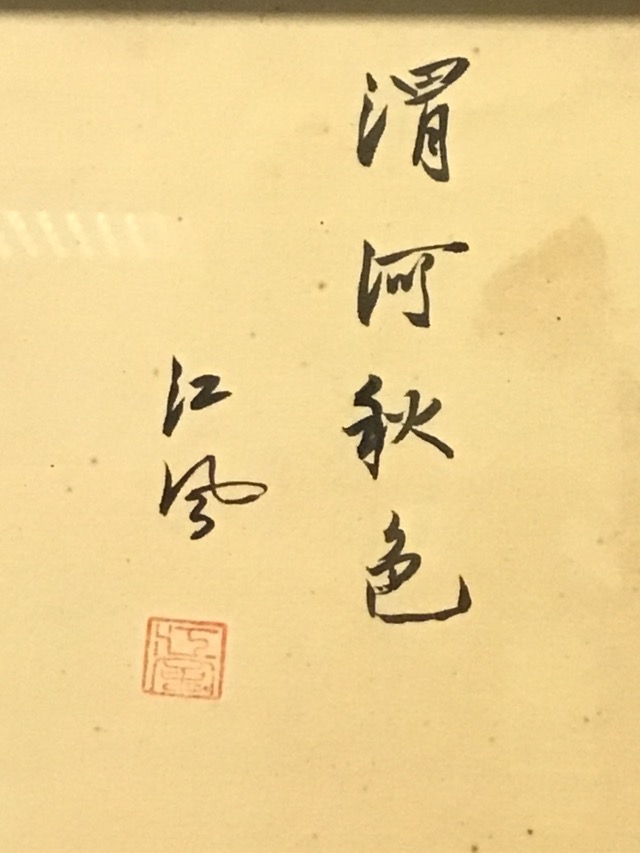 渭河秋色
江